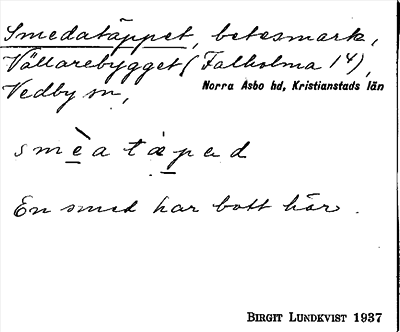 Smedatäppet, betesmark,
Vällarebygget (Falholma 1⁴),
Vedby sn,
Norra Asbo hd, Kristianstads län
smèa tæpəd
En smed har bott här.
BIRGIT LUNDKVIST 1937